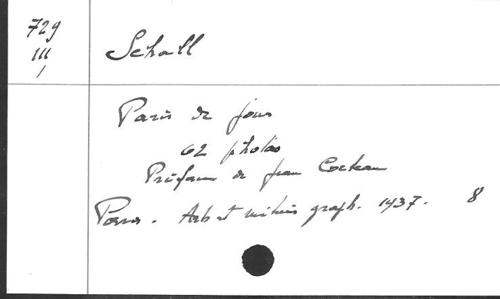 729
III
1
Schall
Paris de jour
62 photos
Préface de Jean Cocteau
Paris. Arts et métiers graph. 1937. 8